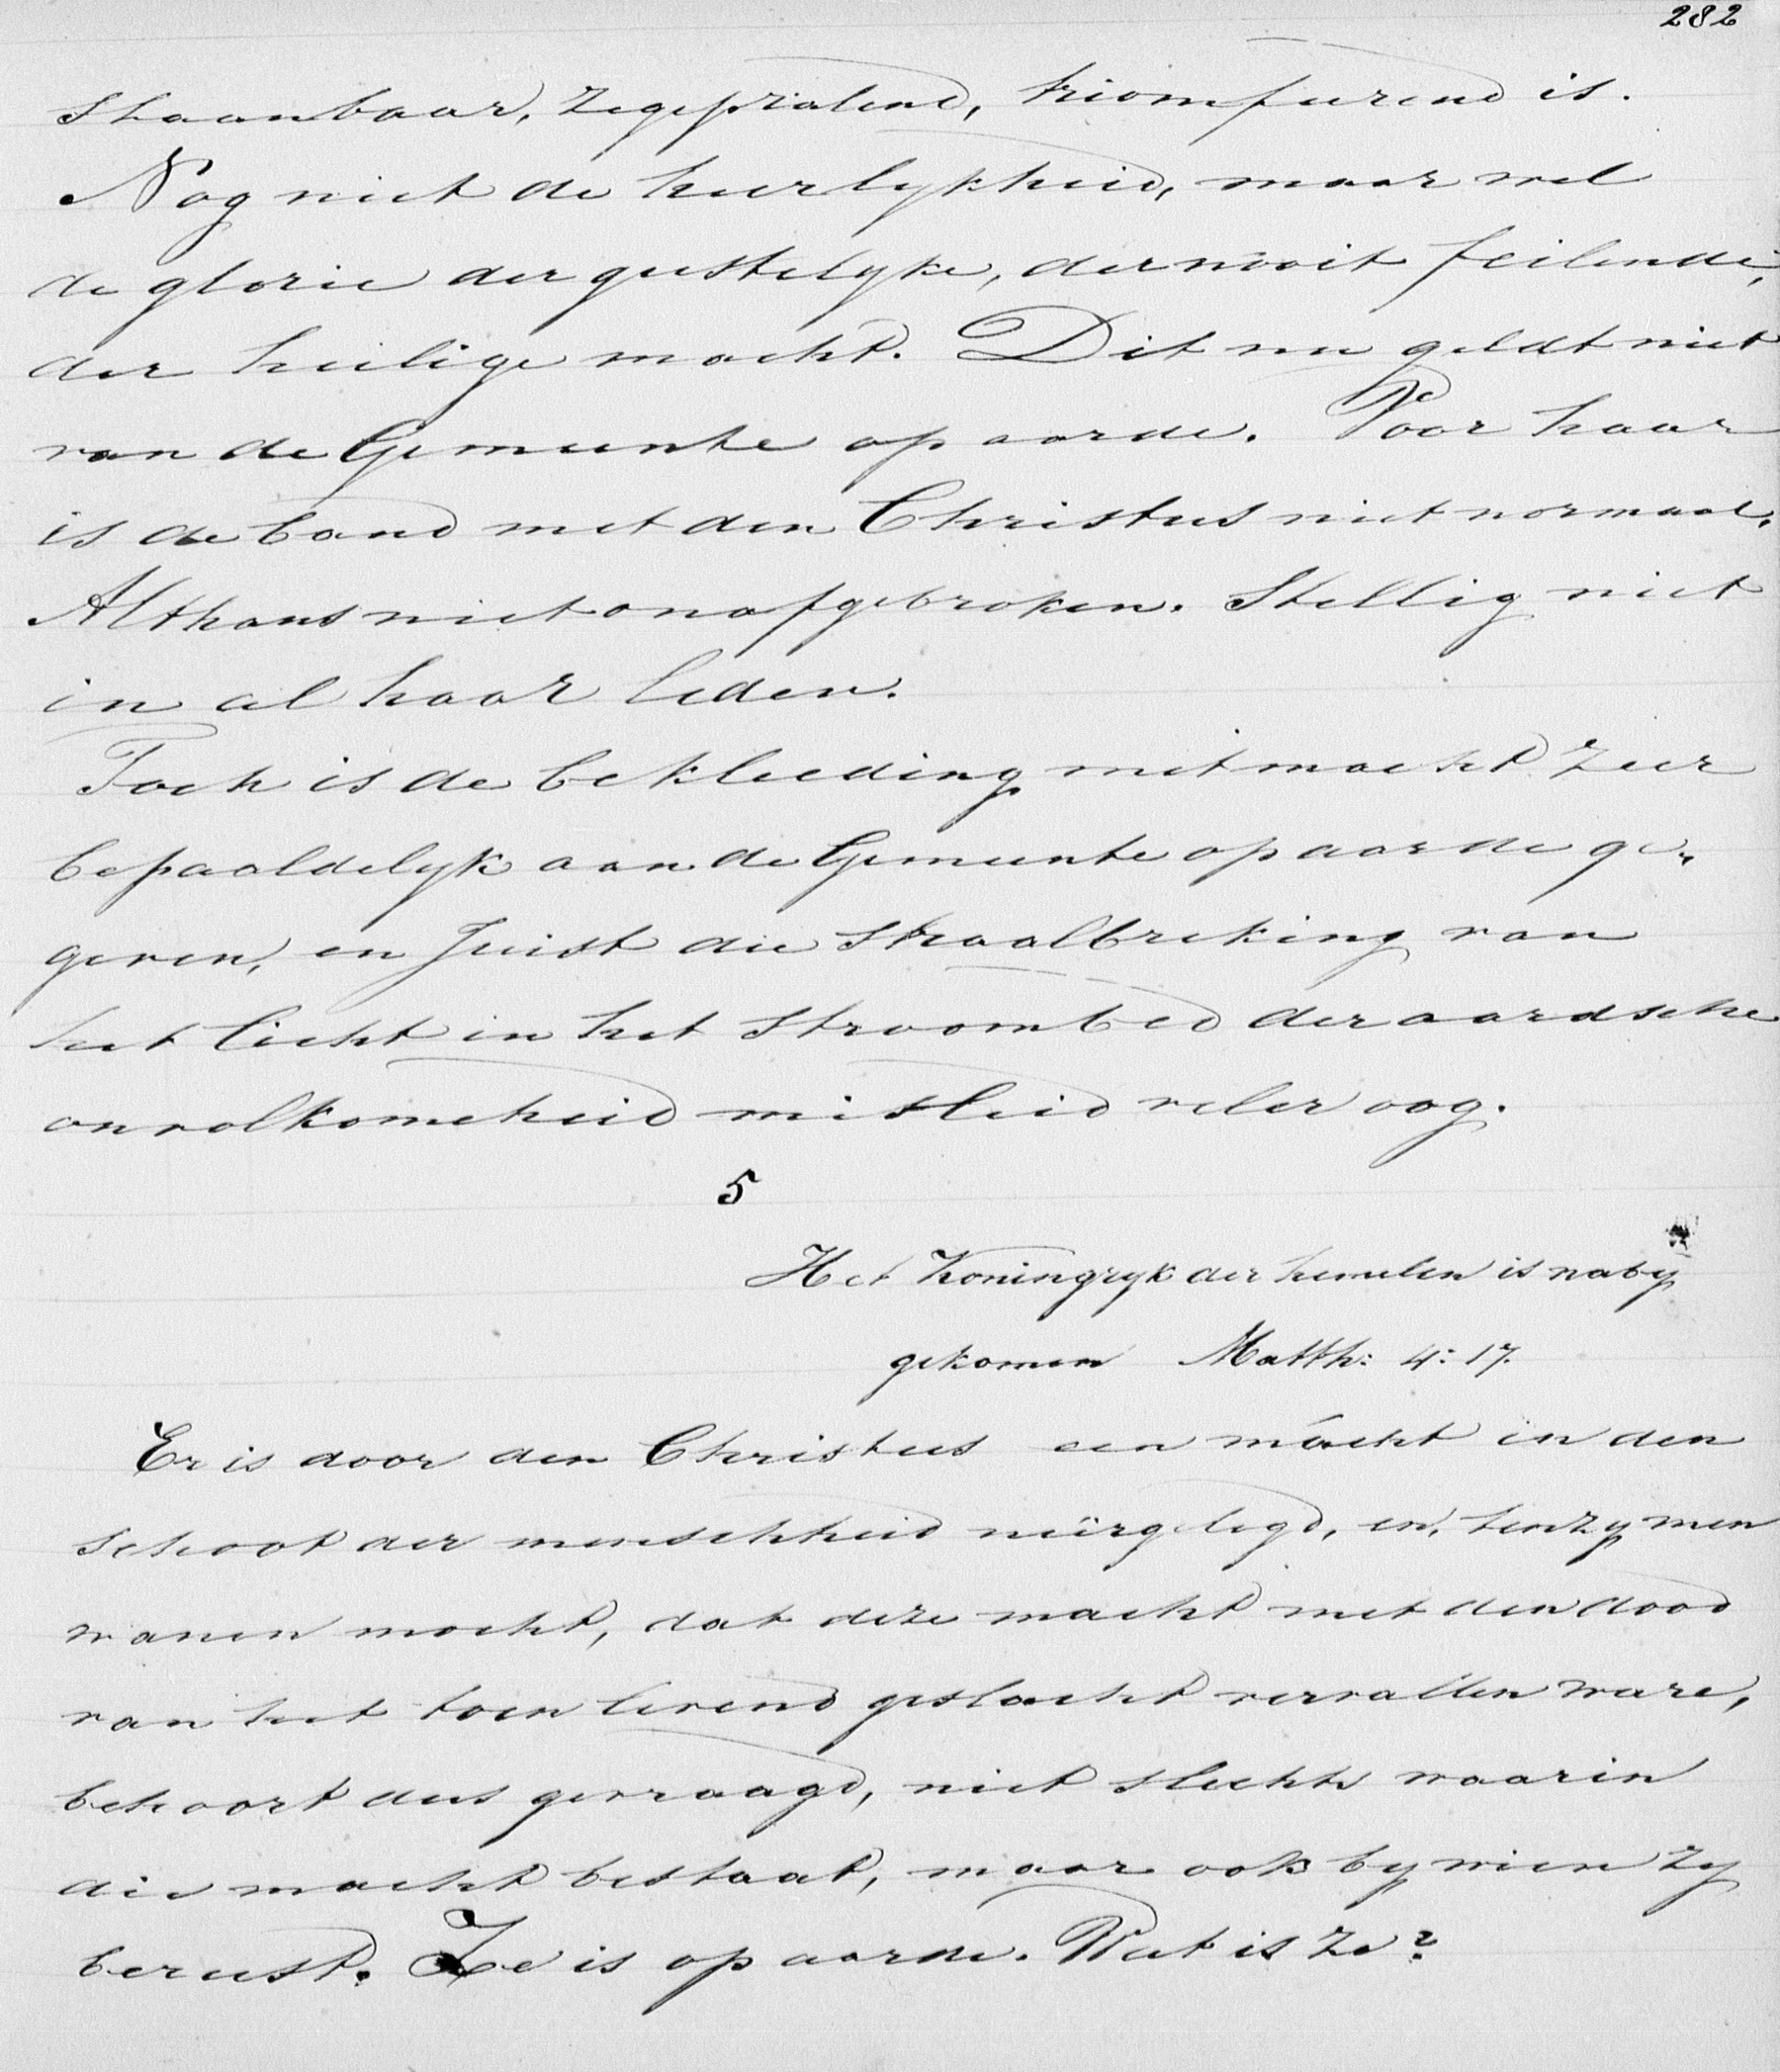 282
staanbaar, zegepralend, triomfeerend is.
Nog niet de heerlykheid, maar wel
de glorie der geestelyke, der nooit feilende,
der heilige macht. Dit nu geldt niet
van de Gemeente op aarde. Voor haar
is de band met den Christus niet normaal.
Althans niet onafgebroken. Stellig niet
in al haar leden.
Toch is de bekleeding met macht zeer
bepaaldelyk aan de Gemeente op aarde ge„
geven, en juist die straalbreking van
het licht in het stroombed der aardsche
onvolkomeheid misleid veler oog.
5
Het Koningryk der hemelen is naby
gekomen Matth: 4: 17.
Er is door den Christus een mácht in den
schoot der menschheid neêrgelegd, en, tenzy men
wanen mocht, dat deze macht met den dood
van het toen levend geslacht vervallen ware,
behoort dus gevraagd, niet slechts waarin
die macht bestaat, maar ook by wien zy
berust. Ze is op aarde. Wat is ze?